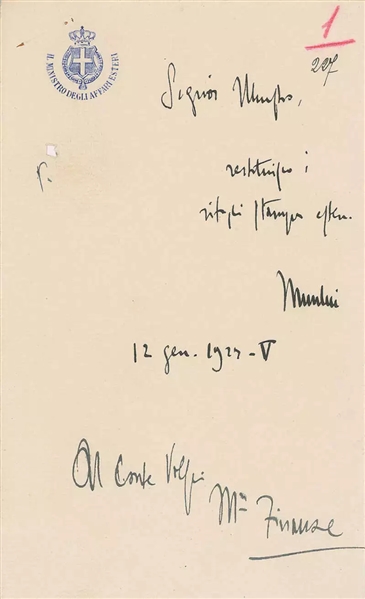 IL MINISTRO DEGLI AFFARI ESTERI
1
227
Signor Ministro,
restituisco i
ritagli stampa estera.
Mussolini
12 gen. 1927 - V
Al Conte Volpi
Finanze